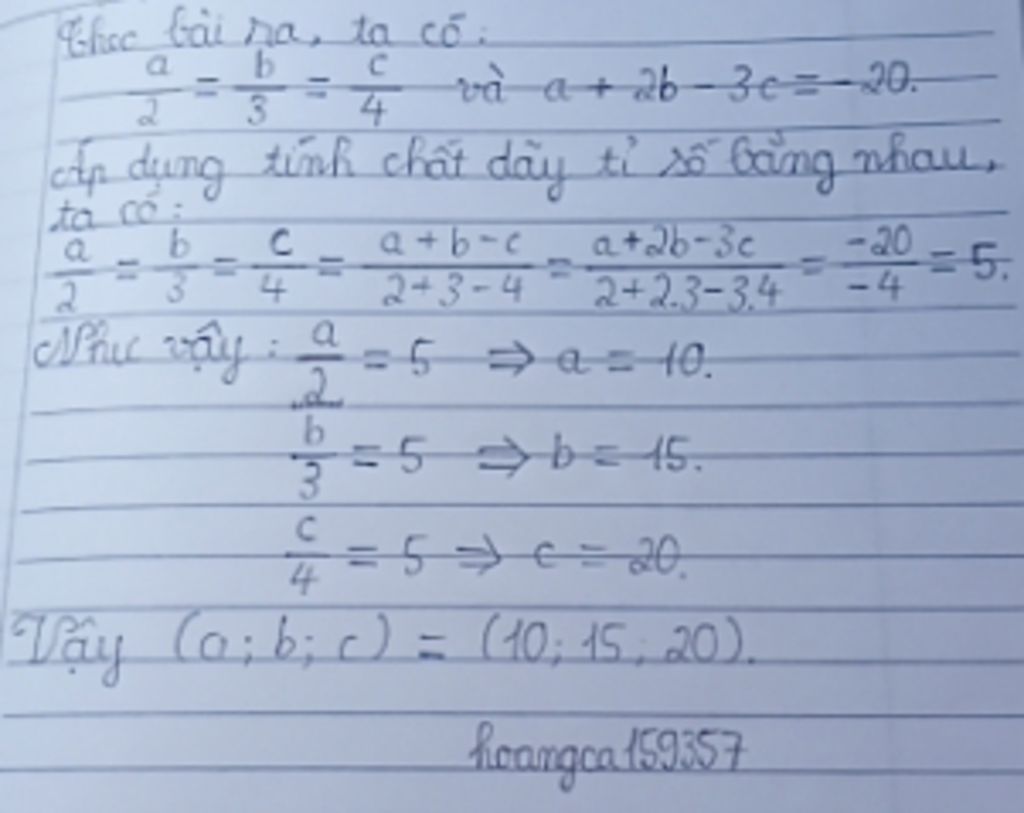 Theo bài ra, ta có:
a/2 = b/3 = c/4 và a + 2b - 3c = -20.
Áp dụng tính chất dãy tỉ số bằng nhau,
ta có:
a/2 = b/3 = c/4 = (a + b - c)/(2 + 3 - 4) = (a + 2b - 3c)/(2 + 2.3 - 3.4) = -20/-4 = 5.
Như vậy: a/2 = 5 ⇒ a = 10.
b/3 = 5 ⇒ b = 15.
c/4 = 5 ⇒ c = 20.
Vậy (a; b; c) = (10; 15; 20).
hoangca159357